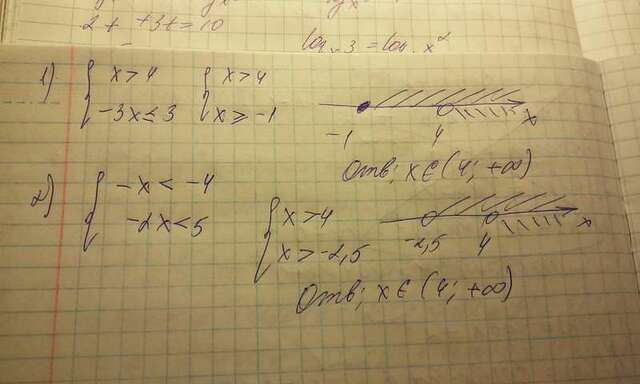 2t +3t=10
log 3 = log x²
1) { x > 4 { x > 4
-3x ≤ 3 x ≥ -1
-1 4 x
Отв; x∈(4; +∞)
2) { -x < -4
-2x < 5
{ x > 4
x > -2,5
-2,5 4 x
Отв; x∈(4; +∞)